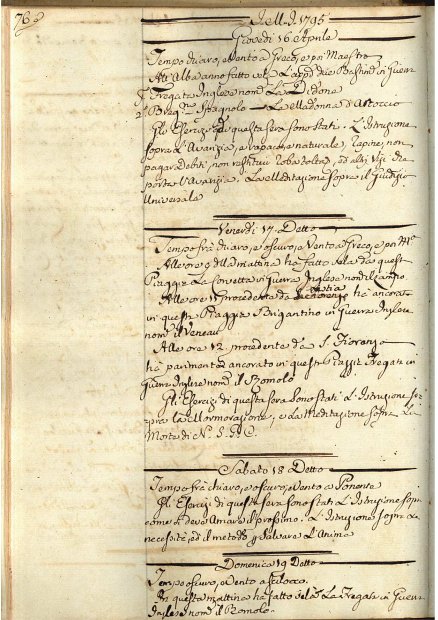 76
A.M.D. 1795
Giovedì 16 Aprile
Tempo chiaro, e Vento a Greco, e poi Maestro
All'Alba anno fatto vela L'appdi due Bastimti in Guerr
Fregata Inglese nomta La Didone
Brigno Spagnolo La Madonna d'
Gli Esercizi di questa sera sono stati. L'Istruzione
sopra l'Avarizia, e rapacie naturale, rapine, non
pagar debiti, non restituir roba tolta, ed altri vizi che
porta l'Avarizia. La Meditazione sopra il Giudizio
Universale
Venerdì 17 Detto
Tempo frà chiaro, e oscuro, e Vento a Greco, e poi
Alle ore 9 di Mattina ha fatto vela da questa
Piaggia La Corvetta in Guerra Inglese nomta il
Alle ore 11 procedente da ha ancorato
in questa Piaggia Brigantino in Guerra Inglese
nomto il
Alle ore 12 procedente da S. Fiorenzo
ha parimenti ancorato in questa Piaggia Fregata in
Guerra Inglese nomta il Romolo
Gli Esercizi di questa sera sono stati L'Istruzione so
pra la Mormorazione, e la Meditazione sopra La
Morte di N. S. G. C.
Sabato 18 Detto
Tempo frà chiaro, e oscuro, e Vento a Ponente
Gli Esercizi di questa sera sono stati L'Istruzione sopra
come si deve Amare il prossimo. L'Istruzione sopra La
necessità, ed il metodo p Salvare L'Anima
Domenica 19 Detto
Tempo oscuro, e Vento a Scilocco
In questa mattina ha fatto vela La Fregata in Guerr
Inglese nomta il Romolo